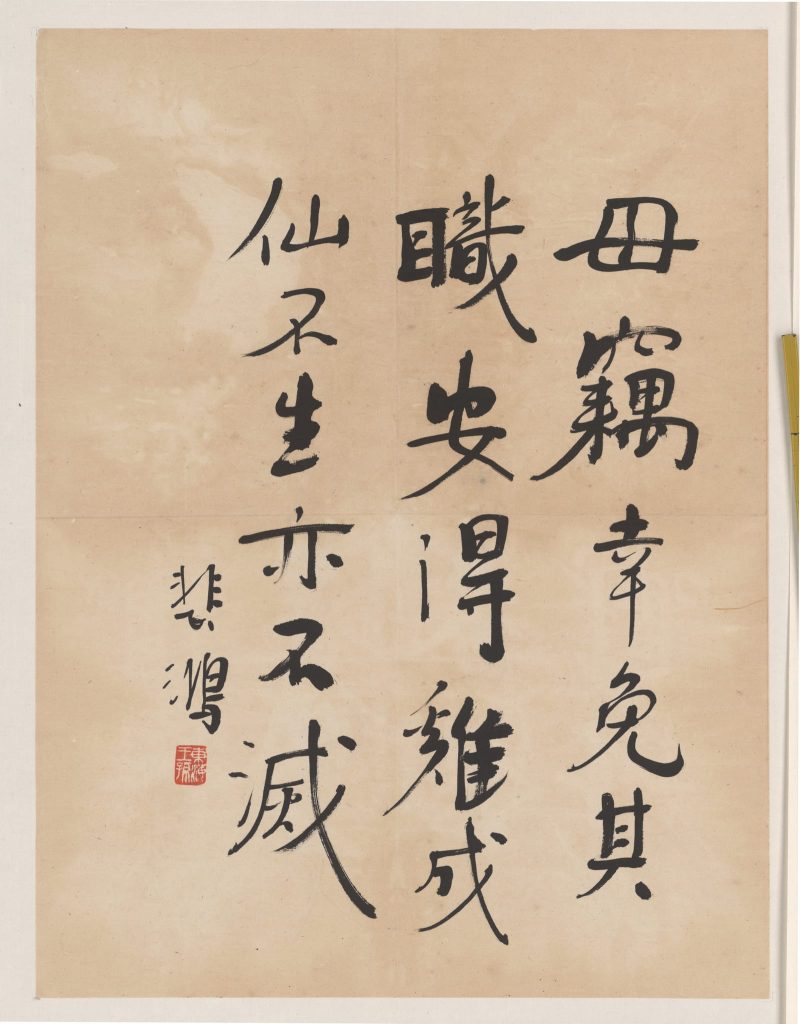 毋竊幸免其
職安得雞成
仙不生亦不滅
悲鴻
東海王孫